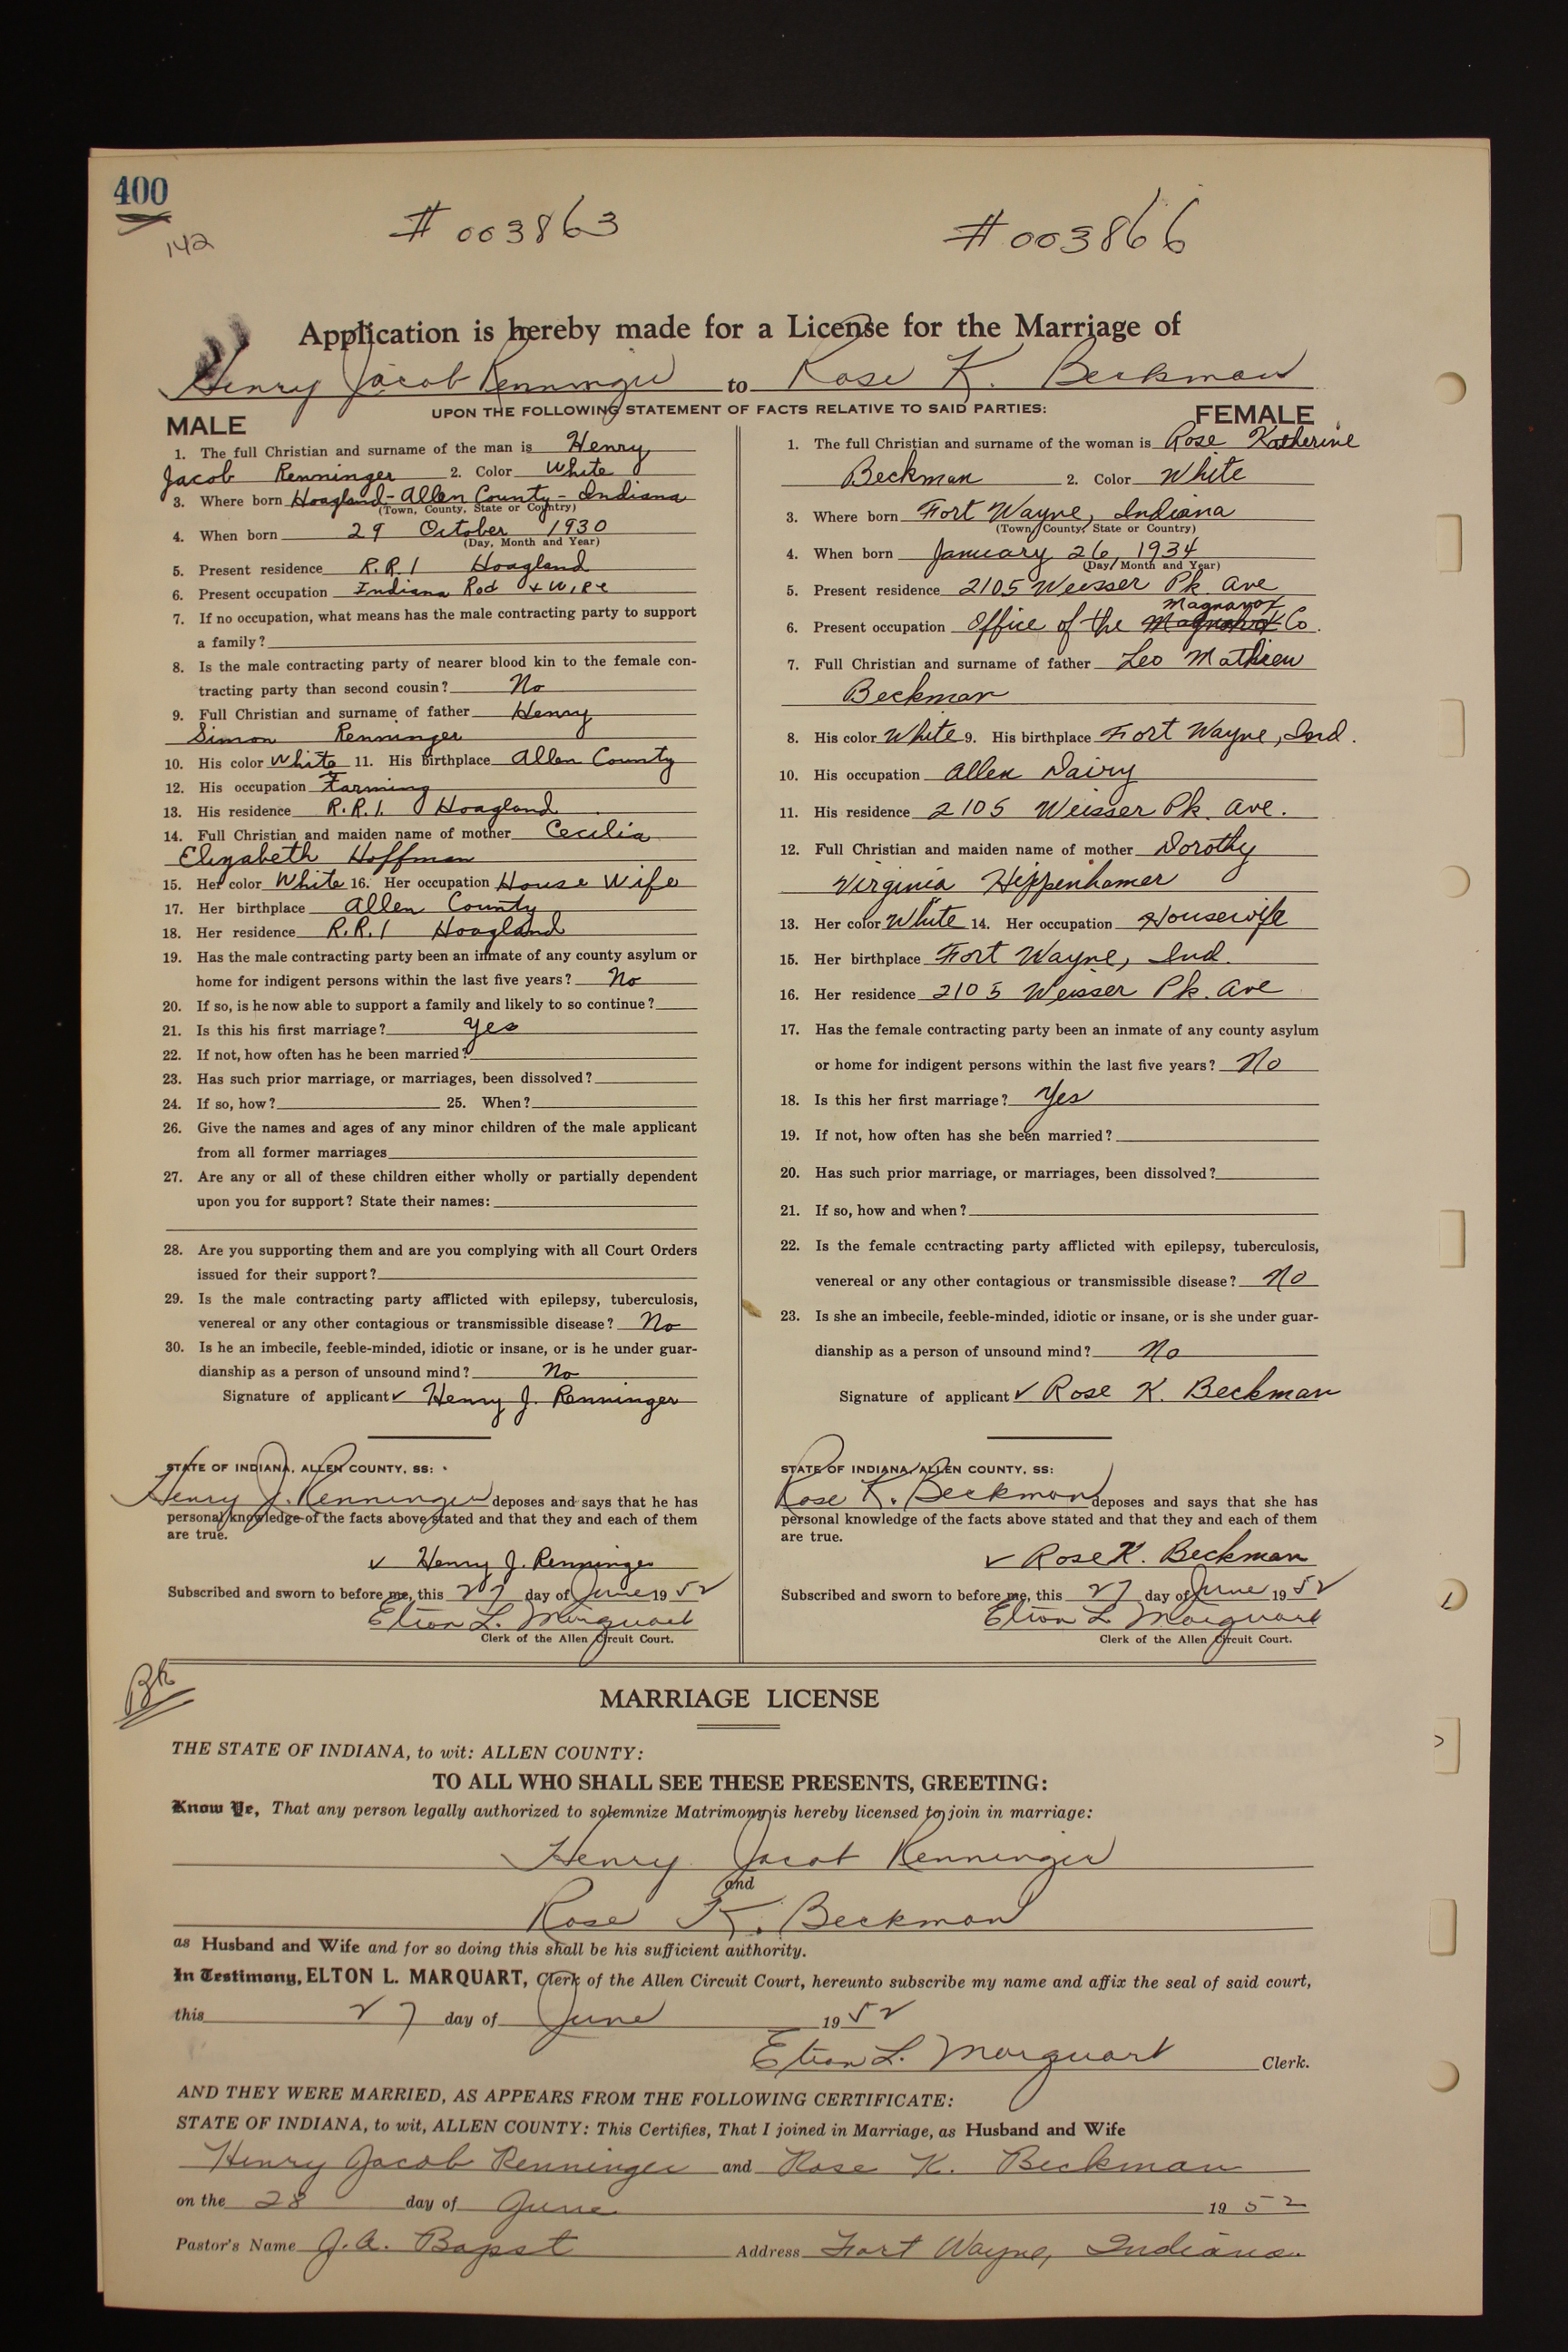 400
142
# 003863
# 003866
Application is hereby made for a License for the Marriage of
Henry Jacob Renninger to Rose K. Beckman
UPON THE FOLLOWING STATEMENT OF FACTS RELATIVE TO SAID PARTIES:
MALE
1. The full Christian and surname of the man is Henry
Jacob Renninger 2. Color White
3. Where born Hoagland - Allen County - Indiana
(Town, County, State or Country)
4. When born 29 October 1930
(Day, Month and Year)
5. Present residence R.R.1 Hoagland
6. Present occupation Indiana Rod & Wire
7. If no occupation, what means has the male contracting party to support
a family?
8. Is the male contracting party of nearer blood kin to the female con-
tracting party than second cousin? No
9. Full Christian and surname of father Henry
Simon Renninger
10. His color White 11. His birthplace Allen County
12. His occupation Farming
13. His residence R.R.1. Hoagland
14. Full Christian and maiden name of mother Cecilia
Elizabeth Hoffman
15. Her color White 16. Her occupation House Wife
17. Her birthplace Allen County
18. Her residence R.R.1 Hoagland
19. Has the male contracting party been an inmate of any county asylum or
home for indigent persons within the last five years? No
20. If so, is he now able to support a family and likely to so continue?
21. Is this his first marriage? yes
22. If not, how often has he been married?
23. Has such prior marriage, or marriages, been dissolved?
24. If so, how? 25. When?
26. Give the names and ages of any minor children of the male applicant
from all former marriages
27. Are any or all of these children either wholly or partially dependent
upon you for support? State their names:
28. Are you supporting them and are you complying with all Court Orders
issued for their support?
29. Is the male contracting party afflicted with epilepsy, tuberculosis,
venereal or any other contagious or transmissible disease? No
30. Is he an imbecile, feeble-minded, idiotic or insane, or is he under guar-
dianship as a person of unsound mind? No
Signature of applicant ✓ Henry J. Renninger
STATE OF INDIANA, ALLEN COUNTY, SS:
Henry J. Renninger deposes and says that he has
personal knowledge of the facts above stated and that they and each of them
are true.
✓ Henry J. Renninger
Subscribed and sworn to before me, this 27 day of June 19 52
Elton L. Marquart
Clerk of the Allen Circuit Court.
FEMALE
1. The full Christian and surname of the woman is Rose Katherine
Beckman 2. Color White
3. Where born Fort Wayne, Indiana
(Town, County, State or Country)
4. When born January 26, 1934
(Day, Month and Year)
5. Present residence 2105 Weisser Pk. Ave
Magnavox
6. Present occupation Office of the Co.
7. Full Christian and surname of father Leo Mathiew
Beckman
8. His color White 9. His birthplace Fort Wayne, Ind.
10. His occupation Allen Dairy
11. His residence 2105 Weisser Pk. Ave.
12. Full Christian and maiden name of mother Dorothy
Virginia Hippenhamer
13. Her color White 14. Her occupation Housewife
15. Her birthplace Fort Wayne, Ind.
16. Her residence 2105 Weisser Pk. Ave
17. Has the female contracting party been an inmate of any county asylum
or home for indigent persons within the last five years? No
18. Is this her first marriage? Yes
19. If not, how often has she been married?
20. Has such prior marriage, or marriages, been dissolved?
21. If so, how and when?
22. Is the female contracting party afflicted with epilepsy, tuberculosis,
venereal or any other contagious or transmissible disease? No
23. Is she an imbecile, feeble-minded, idiotic or insane, or is she under guar-
dianship as a person of unsound mind? No
Signature of applicant ✓ Rose K. Beckman
STATE OF INDIANA, ALLEN COUNTY, SS:
Rose K. Beckman deposes and says that she has
personal knowledge of the facts above stated and that they and each of them
are true.
✓ Rose K. Beckman
Subscribed and sworn to before me, this 27 day of June 19 52
Elton L Marquart
Clerk of the Allen Circuit Court.
MARRIAGE LICENSE
THE STATE OF INDIANA, to wit: ALLEN COUNTY:
TO ALL WHO SHALL SEE THESE PRESENTS, GREETING:
Know Ye, That any person legally authorized to solemnize Matrimony is hereby licensed to join in marriage:
Henry Jacob Renninger
and
Rose K. Beckman
as Husband and Wife and for so doing this shall be his sufficient authority.
In Testimony, ELTON L. MARQUART, Clerk of the Allen Circuit Court, hereunto subscribe my name and affix the seal of said court,
this 27 day of June 19 52
Elton L. Marquart Clerk.
AND THEY WERE MARRIED, AS APPEARS FROM THE FOLLOWING CERTIFICATE:
STATE OF INDIANA, to wit, ALLEN COUNTY: This Certifies, That I joined in Marriage, as Husband and Wife
Henry Jacob Renninger and Rose K. Beckman
on the 28 day of June 19 52
Pastor's Name J. A. Bapst Address Fort Wayne, Indiana